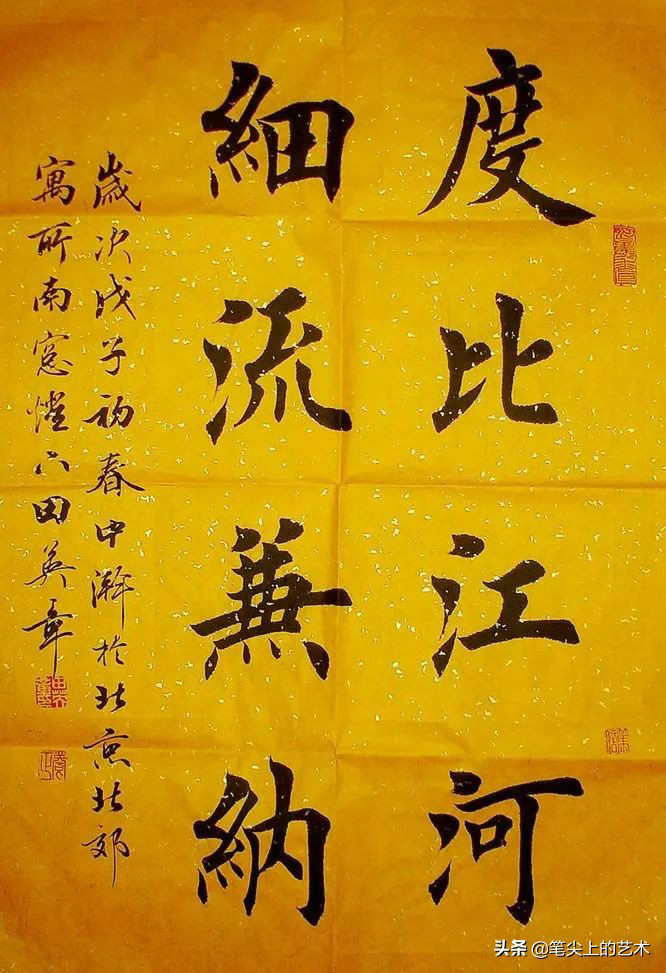 度比江河
細流兼納
歲次戊子初春中澣於北京北郊
寓所南窓燈下田英章
头条 @笔尖上的艺术